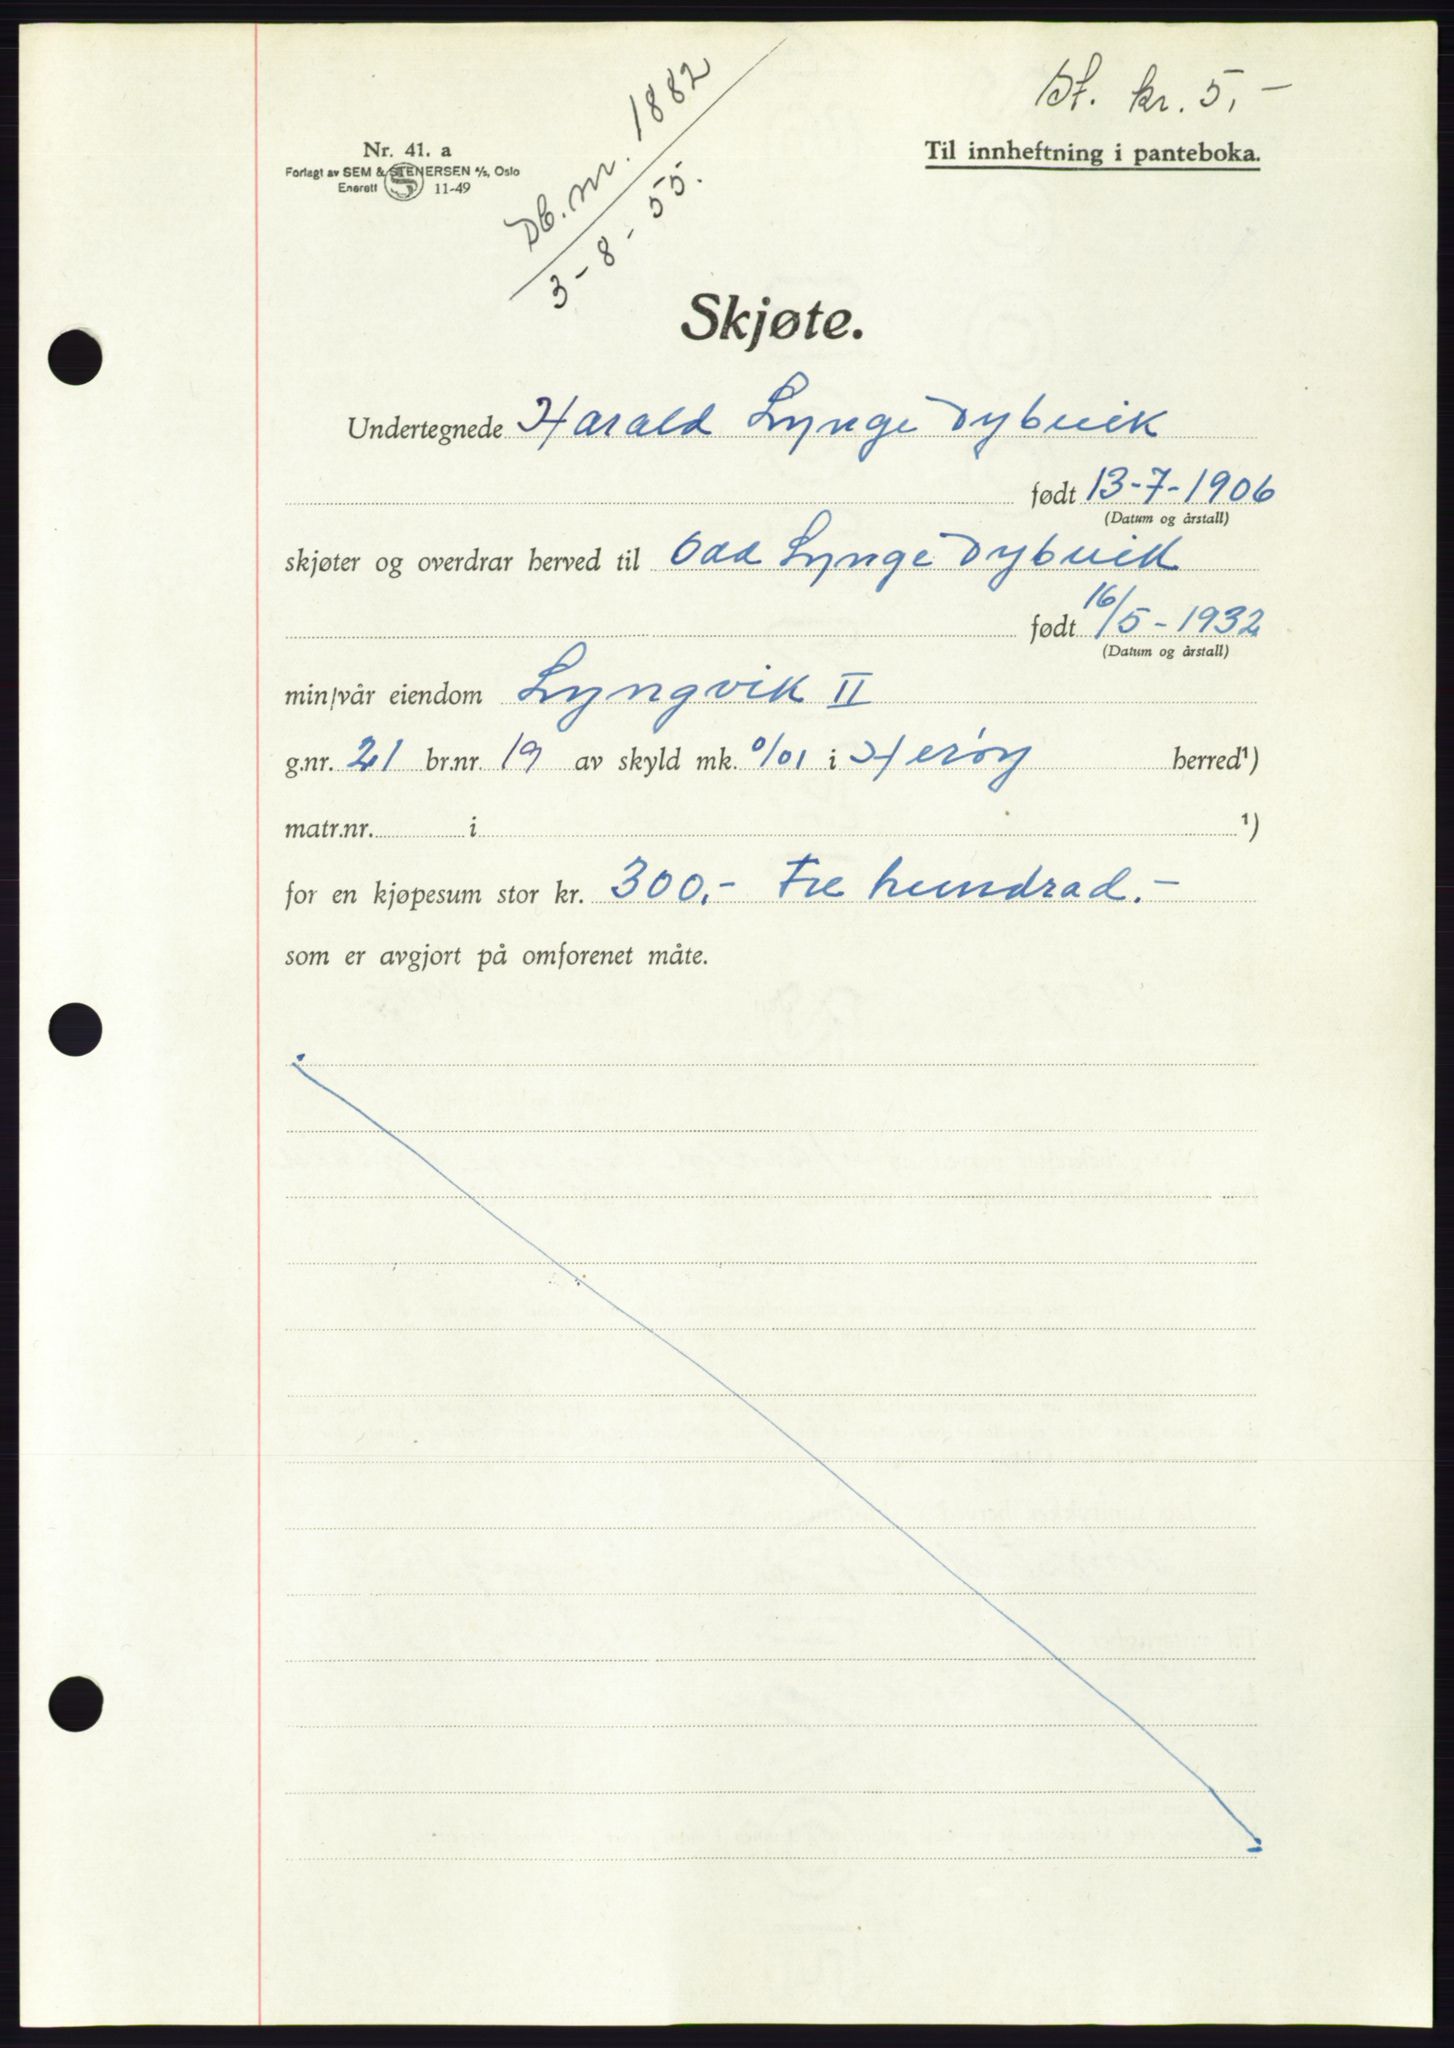 St. kr. 5,-
Nr. 41. a
Forlagt av SEM & STENERSEN A/S, Oslo
Enerett 11-49
Db. nr. 1882
3-8-55.
Til innheftning i panteboka.
Skjøte.
Undertegnede Harald Lynge Dybvik
født 13-7-1906
(Datum og årstall)
skjøter og overdrar herved til Odd Lynge Dybvik
født 16/5-1932
(Datum og årstall)
min/vår eiendom Lyngvik II
g.nr. 21 br.nr. 19 av skyld mk. 0/01 i Herøy herred¹)
matr.nr. i ¹)
for en kjøpesum stor kr. 300,- Tre hundrad.-
som er avgjort på omforenet måte.